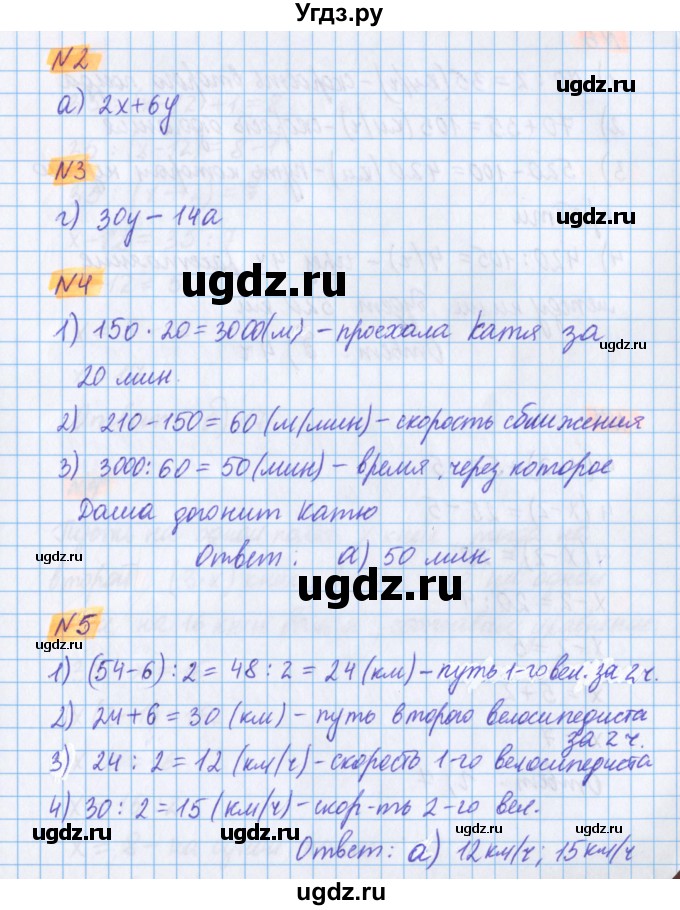 Угдз.ру
N2
а) 2x+6y
N3
г) 30y - 14a
ugdz.ru
ugdz.ru
ugdz.ru
N4
ugdz.ru
ugdz.ru
1) 150 · 20 = 3000(м) - проехала Катя за
ugdz.ru
20 мин.
2) 210-150 = 60 (м/мин) - скорость сближения
3) 3000 : 60 = 50 (мин) - время, через которое
ugdz.ru
ugdz.ru
Даша догонит Катю
Ответ: а) 50 мин
ugdz.ru
ugdz.ru
N5
ugdz.ru
ugdz.ru
1) (54-6) : 2 = 48 : 2 = 24 (км) - путь 1-го вел. за 2ч.
2) 24+6 = 30 (км) - путь второго велосипедиста
за 2 ч.
3) 24 : 2 = 12 (км/ч) - скорость 1-го велосипедиста
ugdz.ru
4) 30 : 2 = 15 (км/ч) - скор-ть 2-го вел.
ugdz.ru
ugdz.ru
ugdz.ru
Ответ: а) 12км/ч; 15км/ч
ugdz.ru